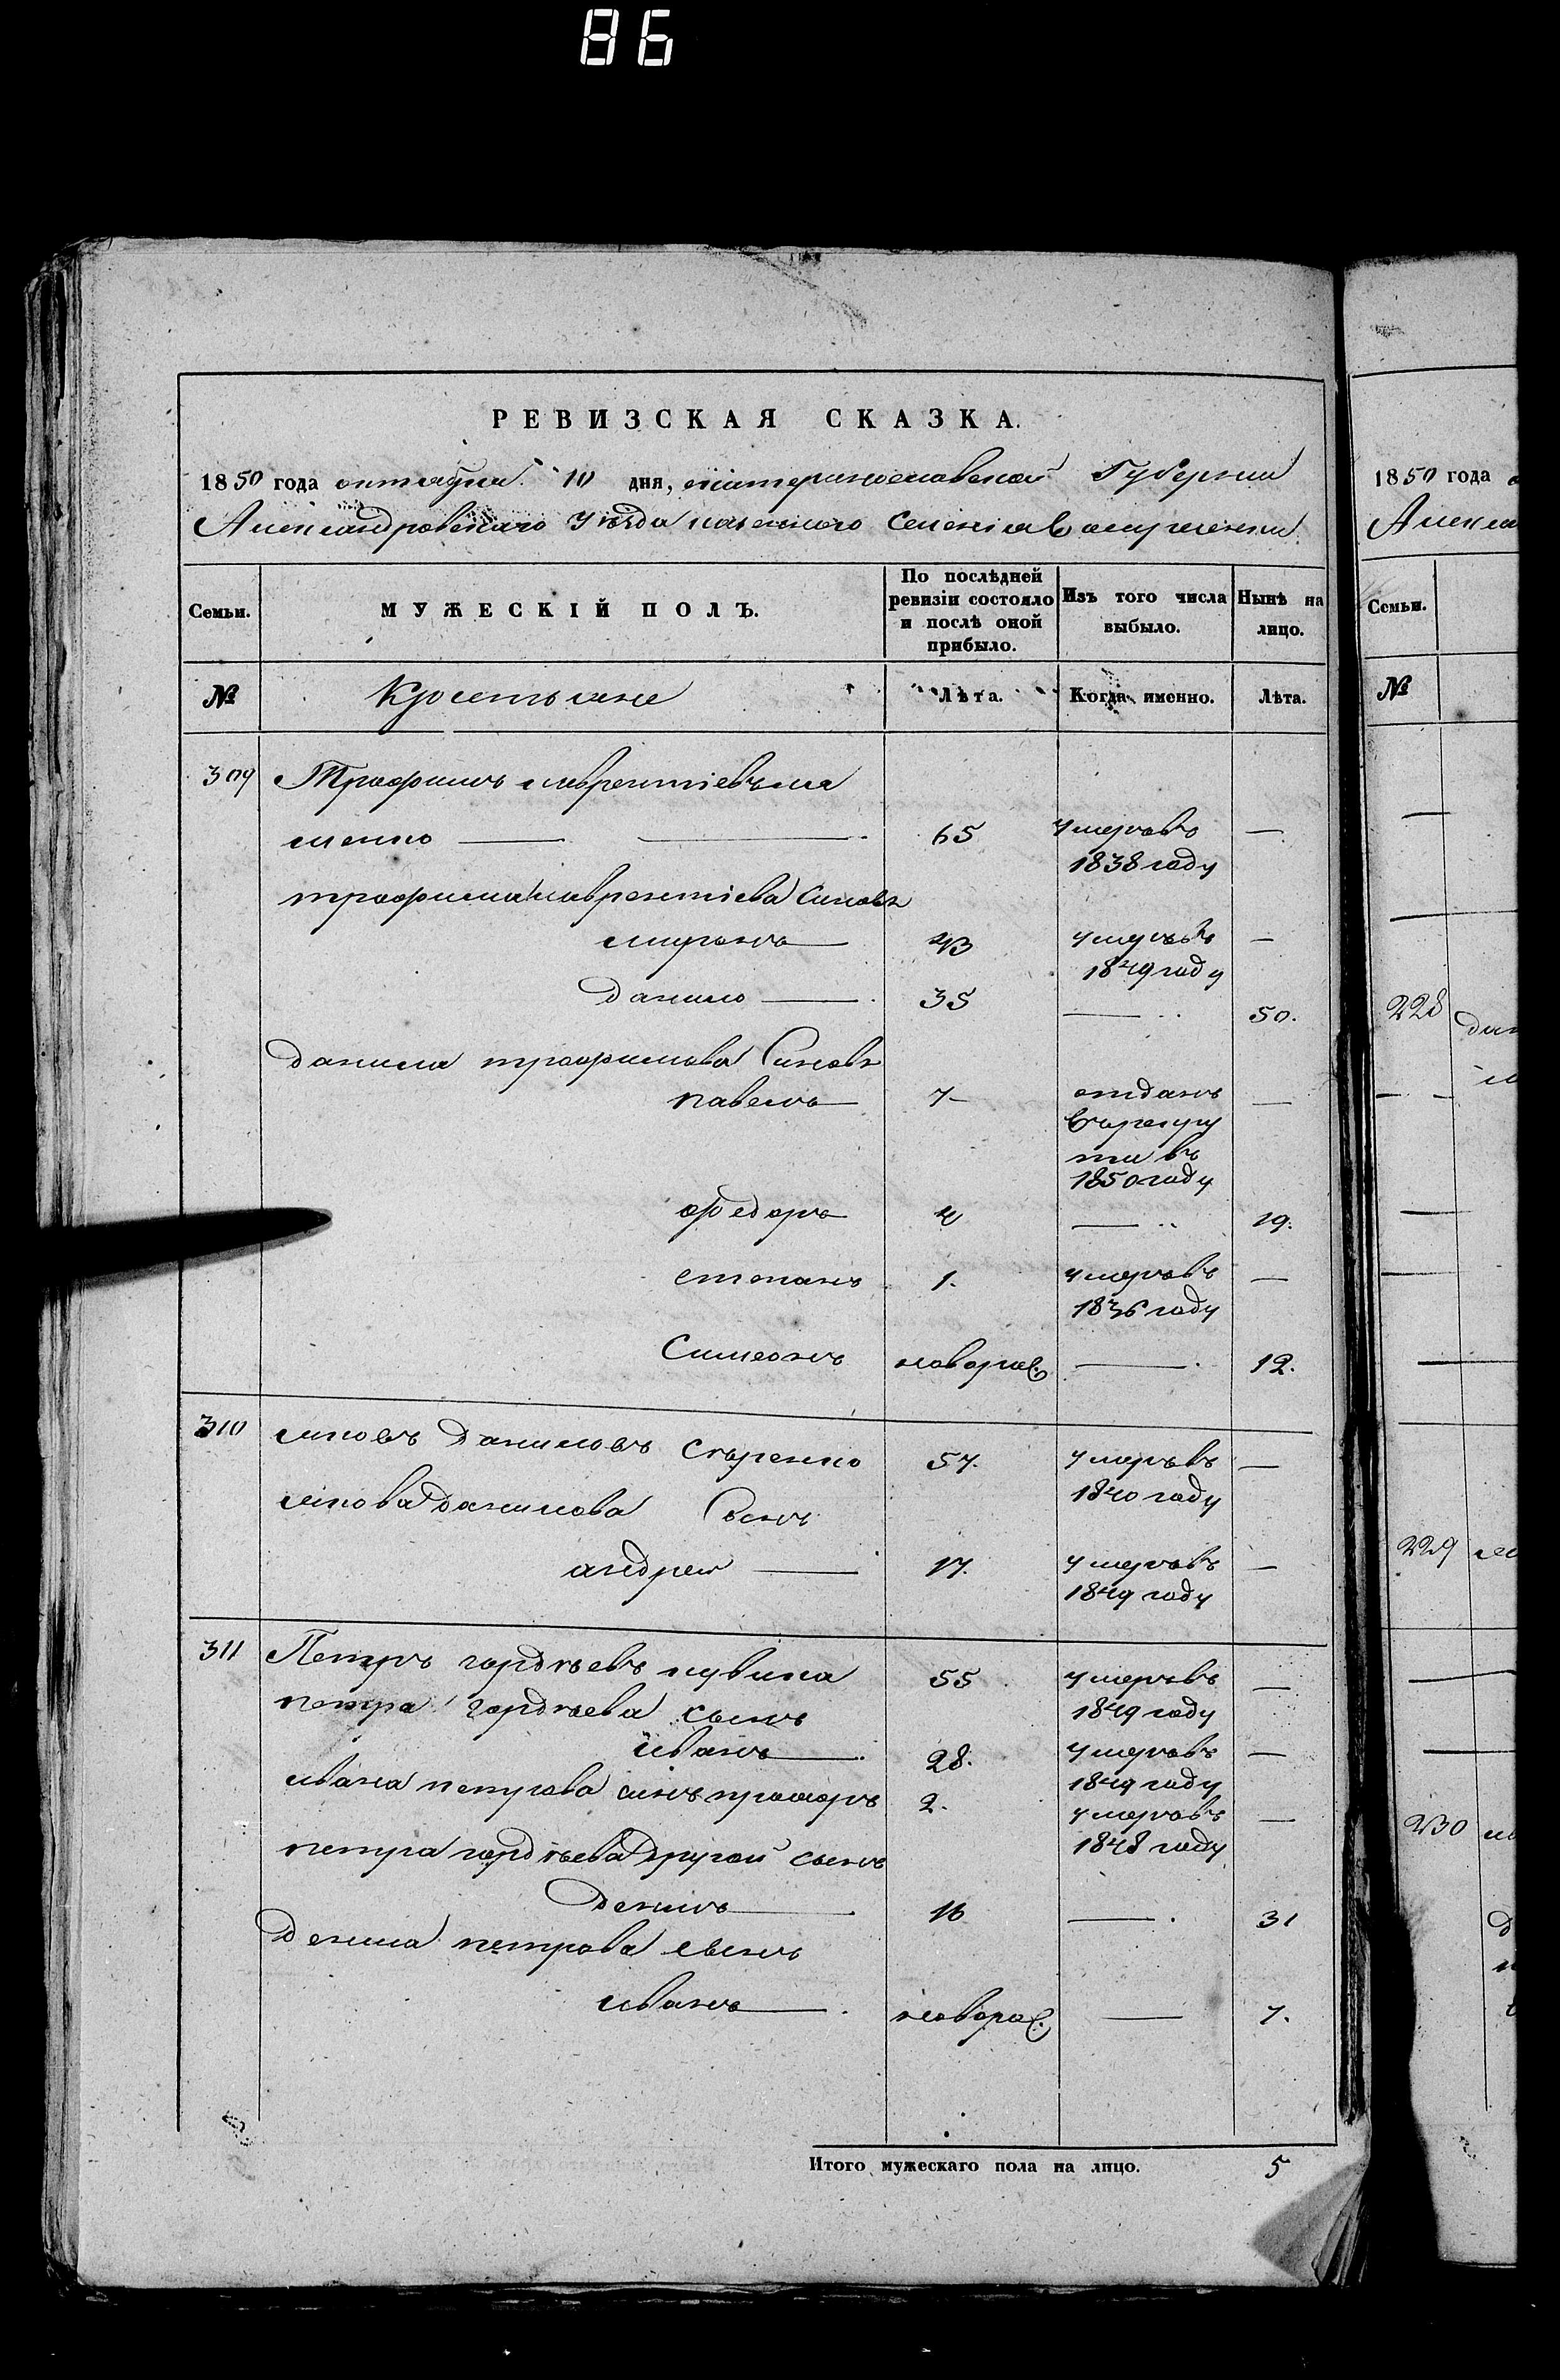 86
РЕВИЗСКАЯ СКАЗКА.
1850 года октября 10 дня, екатеринославской Губернии
Александровскаго Уѣзда казеннаго Селенія
Семьи. МУЖЕСКІЙ ПОЛЪ. По послѣдней ревизіи состояло и послѣ оной прибыло. Изъ того числа выбыло. Нынѣ на лицо.
№ Крестьяне Лѣта. Когда именно. Лѣта.
309 Трофимъ лаврентіевъ
65 умеръ въ —
1838 году
трофима лаврентіева Синовя
миронъ 43 умеръ въ —
1849 году
данило 35 — 50.
данила трофимова Синовя
павелъ 7 отданъ —
въ рекру
ти въ
1850 году
федоръ 4 — 19.
степанъ 1. умеръ въ —
1836 году
Симеонъ новорож. — 12.
310 яковъ Даниловъ Сѣренко 57. умеръ въ —
1840 году
якова данилова Сынъ
андрей 17. умеръ въ —
1849 году
311 Петръ гордѣевъ 55 умеръ въ —
1849 году
петра гордѣева сынъ
иванъ 28. умеръ въ —
1849 году
ивана петрова синъ 2. умеръ въ —
1848 году
петра гордѣева другой сынъ
Денисъ 16 — 31
Дениса петрова сынъ
иванъ новорож. — 7.
Итого мужескаго пола на лицо. 5
1850 года
№
Семьи.
228
229
230